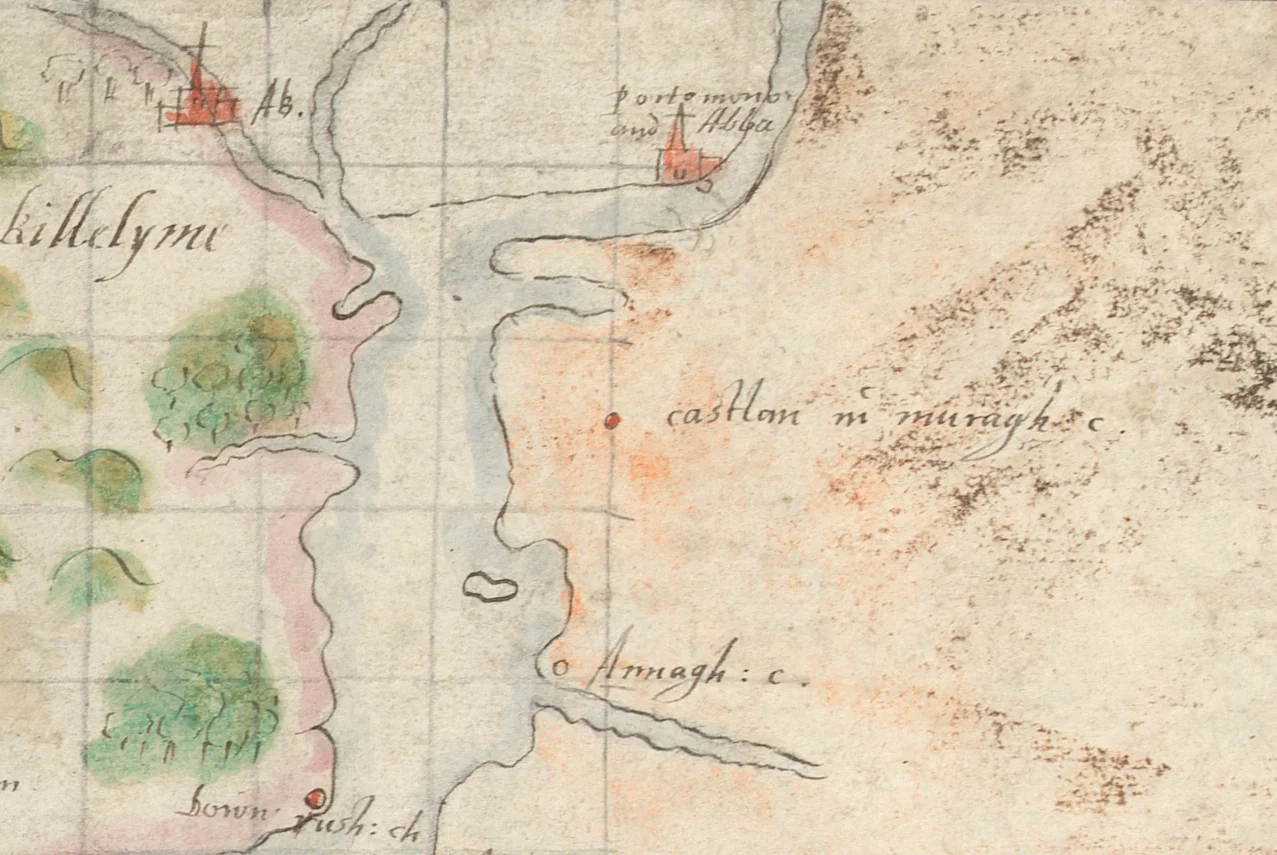 Ab.
portomonor
and Abba
killelyme
castlan ni muragh: c.
Annagh: c.
rush: ch